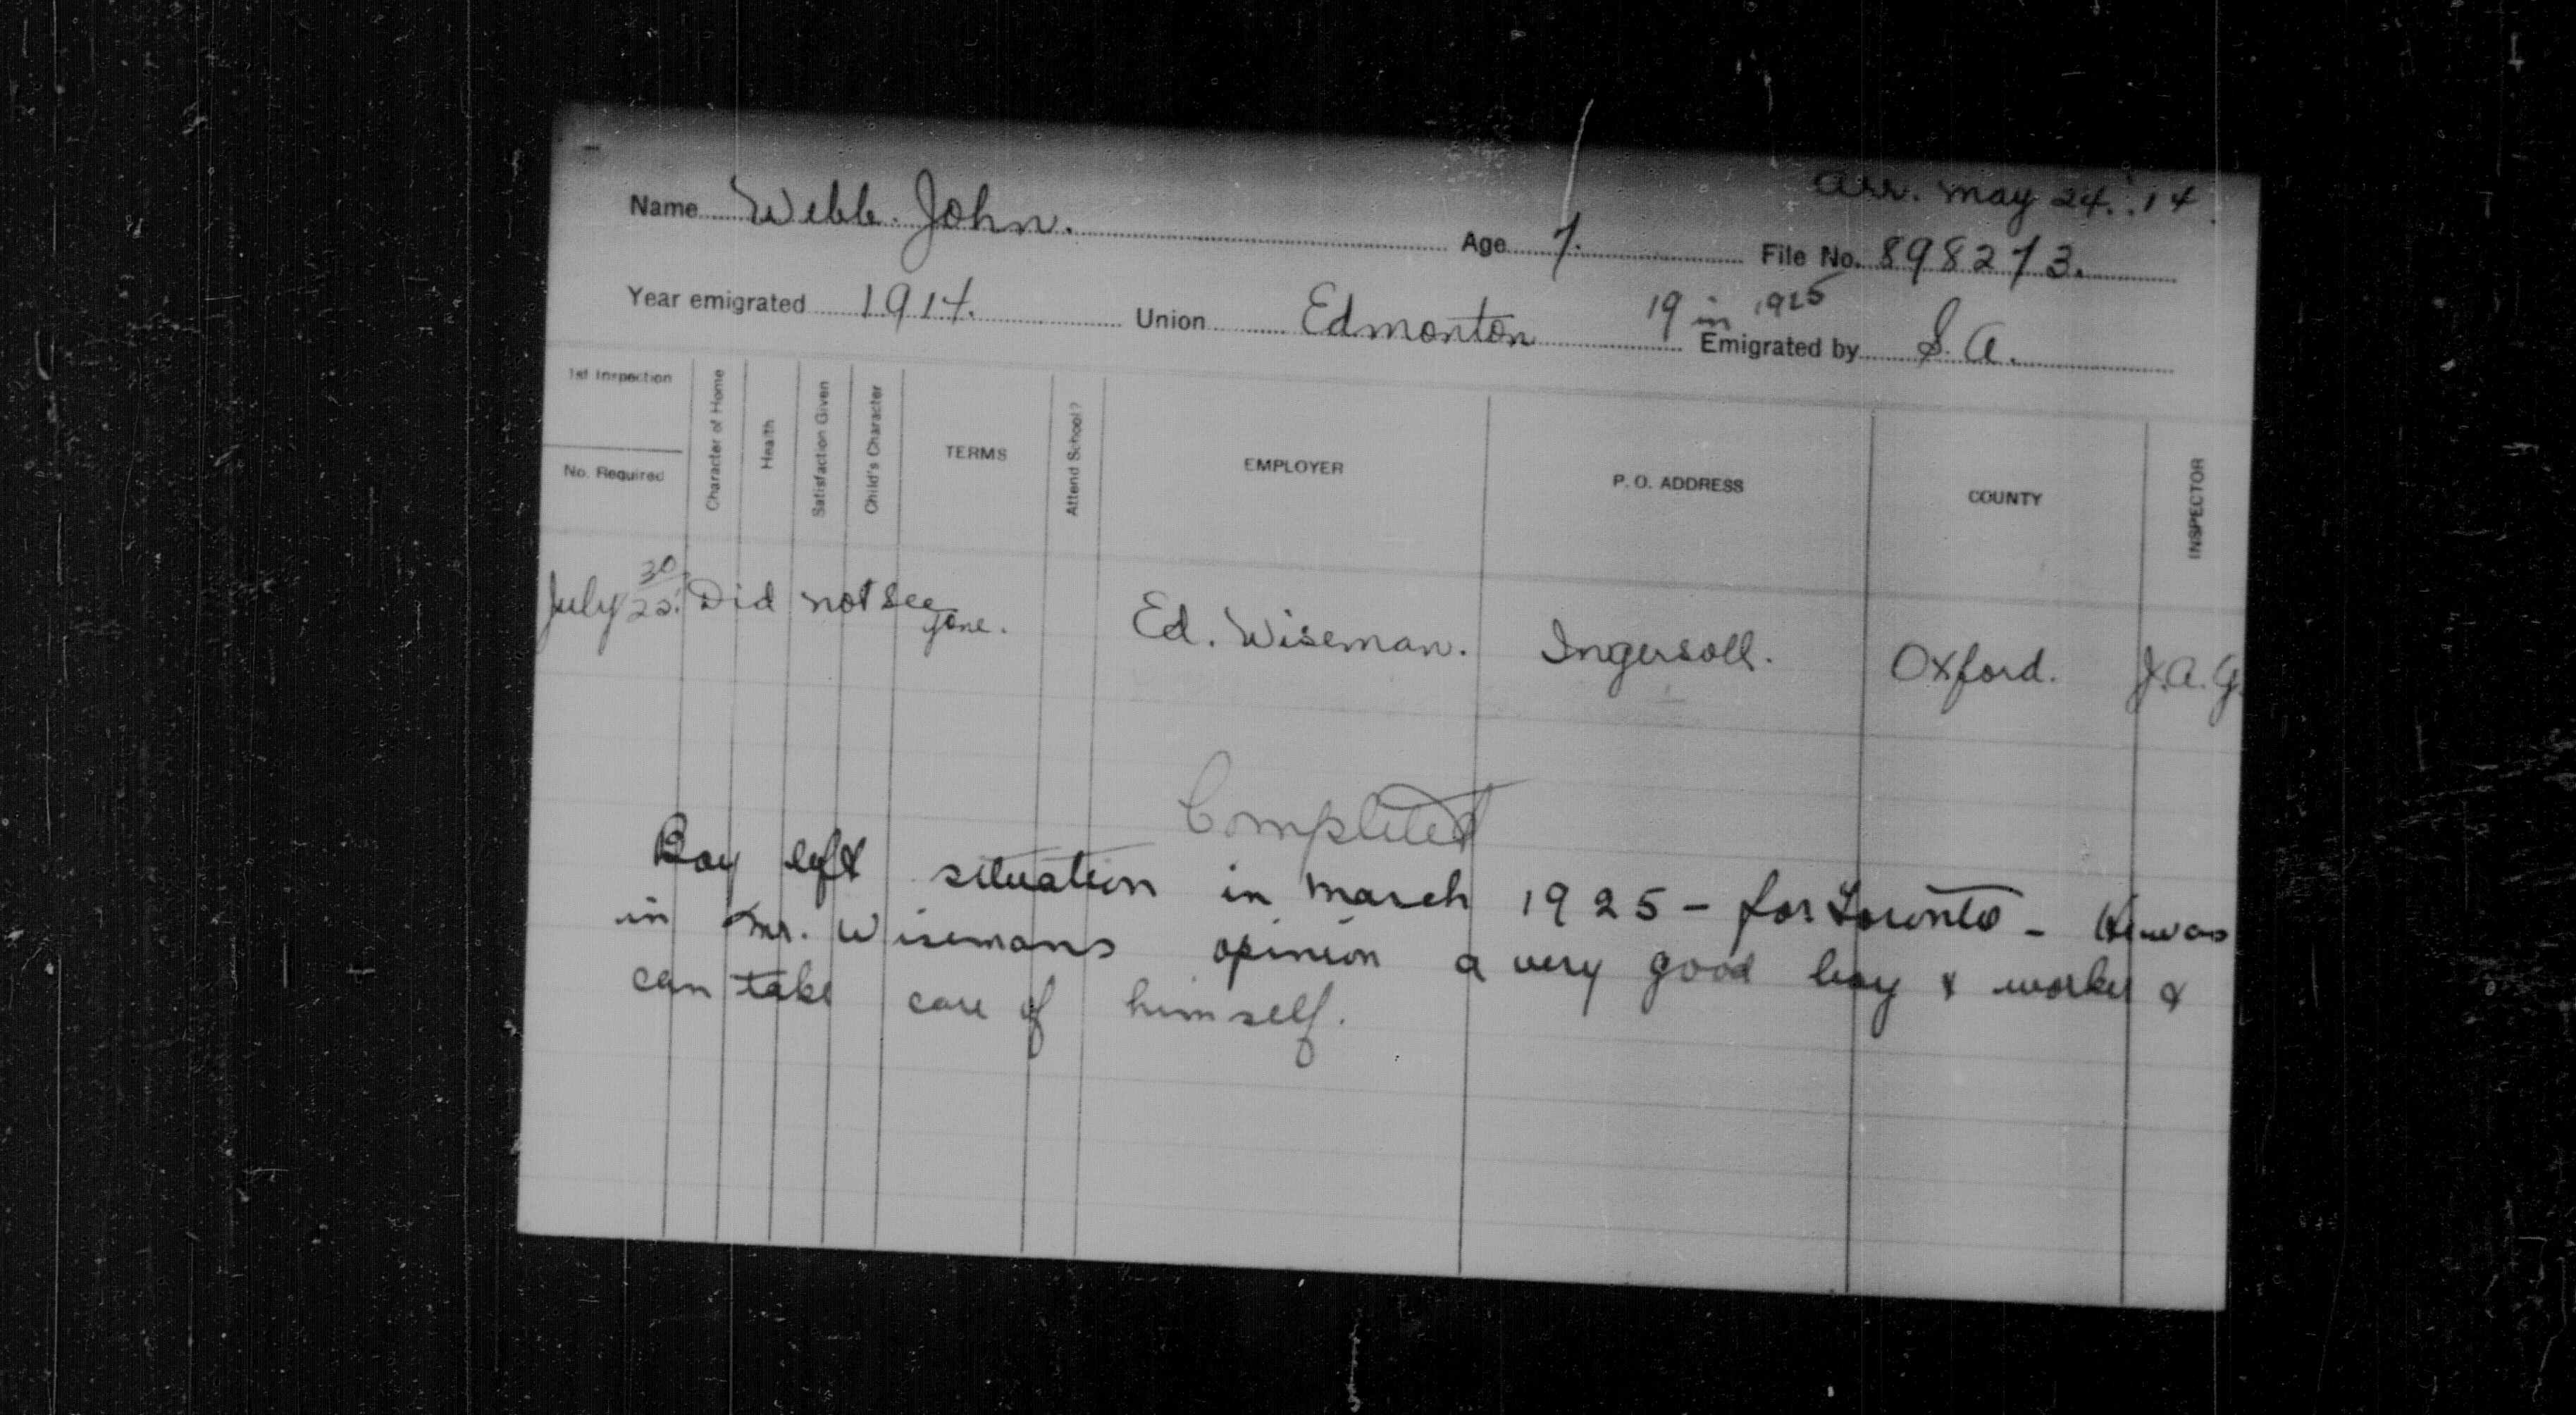 arr. May 24. '14.
Name Webb. John. Age 7. File No. 898273.
19 in 1925
Year emigrated 1914. Union Edmonton Emigrated by S. A.
1st Inspection
No. Required
Character of Home
Health
Satisfaction Given
Child's Character
TERMS
Attend School?
EMPLOYER
P. O. ADDRESS
COUNTY
INSPECTOR
July 30/25. Did not see gone. Ed. Wiseman. Ingersoll. Oxford. J.A.G.
Completed
Boy left situation in March 1925 - for Toronto - He was
in Mr. Wisemans opinion a very good boy & worker &
can take care of himself.